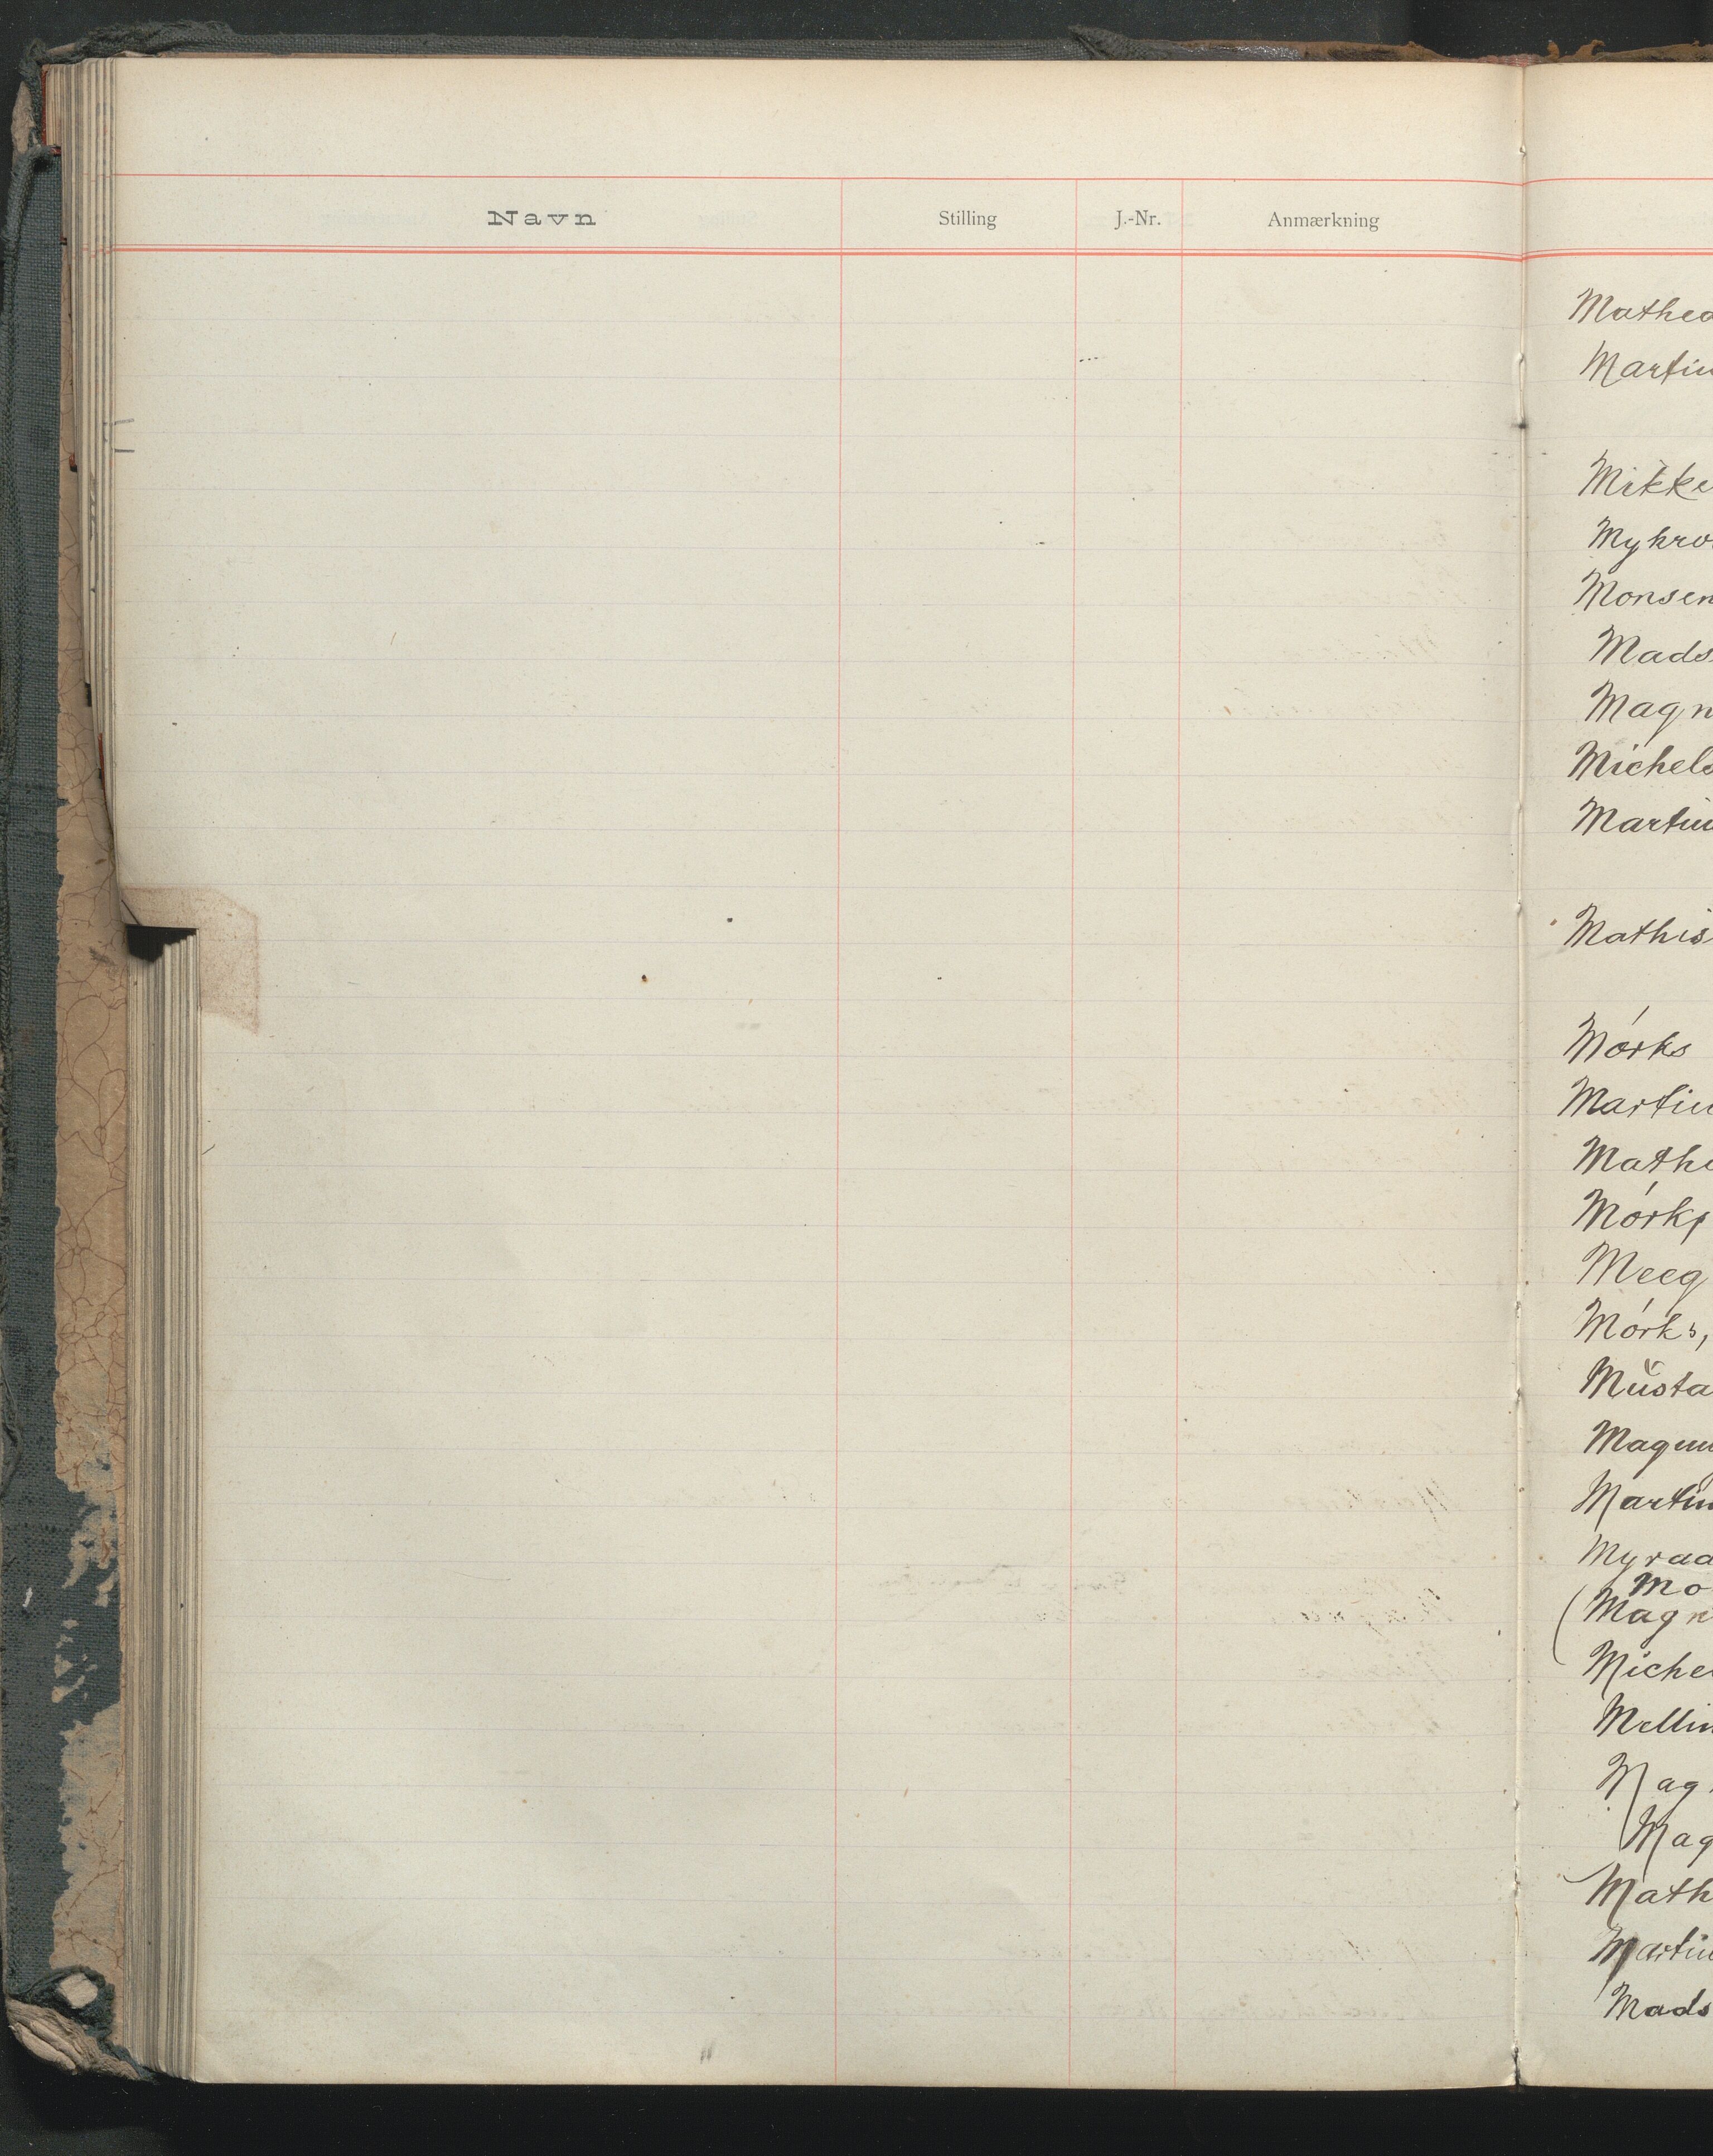 Navn Stilling J.-Nr. Anmærkning
Mathea
Martin
Mikke
Mykro
Monsen
Mads
Magn
Michels
Martin
Mathis
Mórks
Martin
Mathi
Meeg
Mórks,
Mŭsta
Magnu
Martin
Myraa
Mo
(Magn
Miche
Mellin
Mag
Mag
Math
Martin
Mads